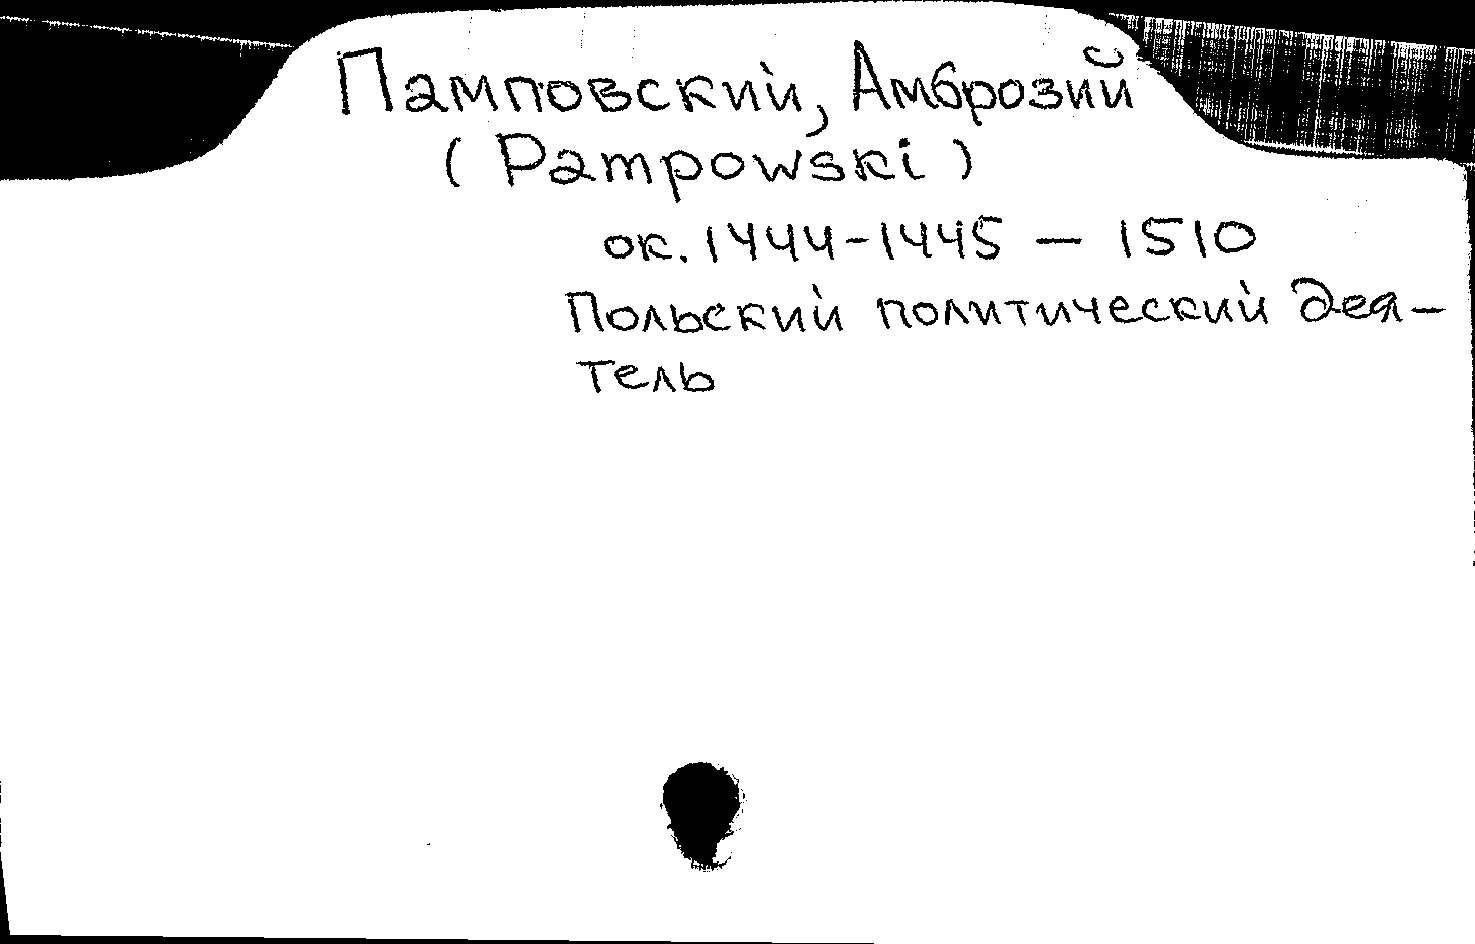 Памповский, Амброзий
(Pampowski)
ок. 1444-1445 — 1510
Польский политический дея-
тель